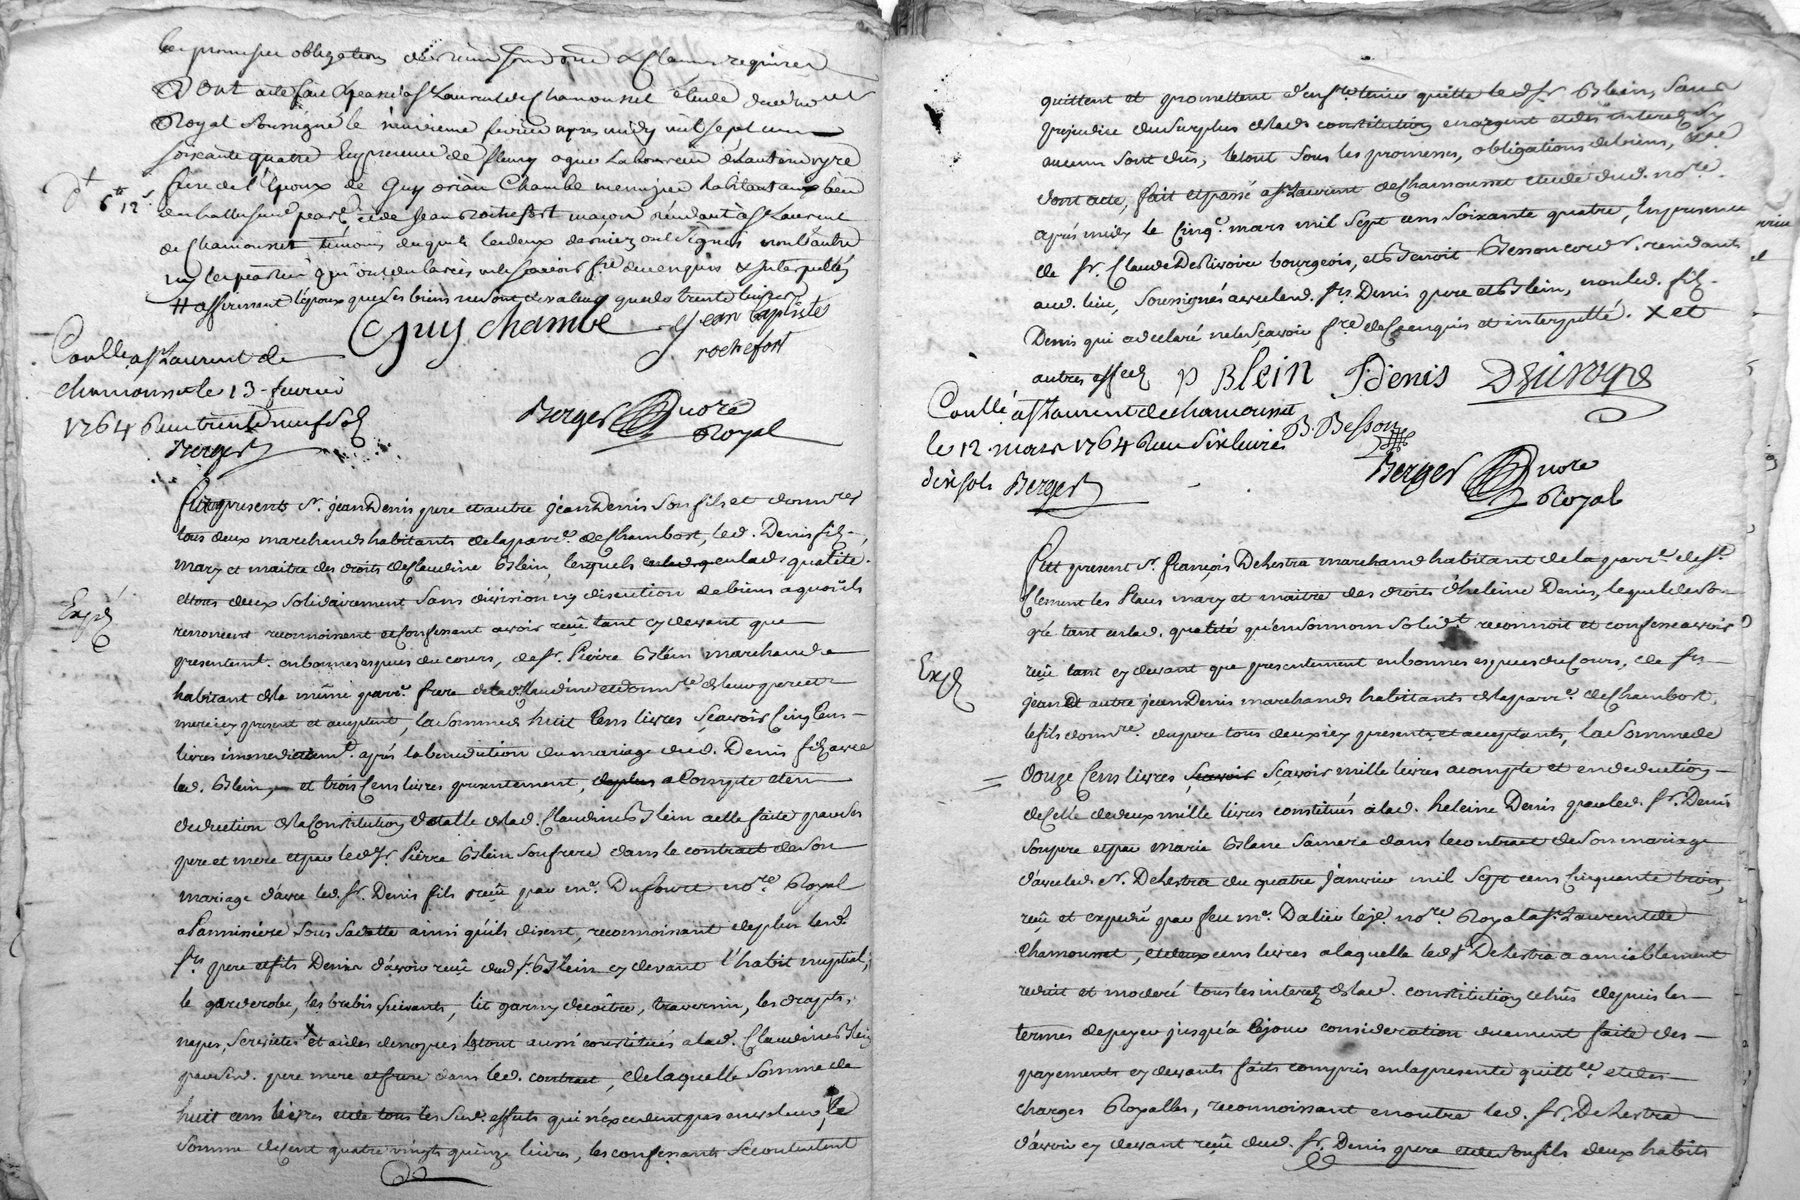 les promesses obligations
Dont acte fait & passé à St Laurent de Chamousset étude du not.re
Royal soussigné le neuvieme fevrier apres midy mil sept cens
soixante quatre En presence de fleury laboureur
frere de l'Epoux de Guy Chambe menuisier habitant
par.e et de Jean Rochefort maçon résidant à St Laurent
de Chamousset témoins lesquels les deux derniers ont signés non l'autre
ny les parties qui ont declarées ne le scavoir f.re de ce enquis & Interpellés
# affirmant l'époux que ses biens ne sont de valeur que de trente livres
Guy chambe Jean Baptiste
rochefort
P.t
6tt 12s
Conllé à St Laurent de
chamousset le 13 fevrier
1764 Reçu trente neuf sols
Berger
Berger nore
Royal
Fut presents Sr. jean Denis pere et autre jean Denis son fils et donn.re
tous deux marchands habitants de la parr.e de Chambost, led. Denis fils
mary et maitre des droits de Claudine Blein, lesquels en lad. qualité
et tous deux solidairement sans division ny discution de biens a quoy ils
renoncent reconnoissent et confessent avoir reçû tant cy devant que
presentem.t en bonnes especes du cours, de Sr. Pierre Blein marchand
habitant de la même parr.e frere de lad. Claudine et donn.re de leurs pere et
mere icy present et acceptant, la somme de huit Cens livres sçavoir Cinq Cens
livres immediatem.t après la benediction du mariage dud. Denis fils avec
lad. Blein, et trois Cens livres presentement, a Compte et en
deduction de la Constitution dotalle de lad. Claudine Blein a elle faite par ses
pere et mere et par led. Sr. Pierre Blein son frere dans le contract de son
mariage d'avec led. Sr. Denis fils reçû par me. Dufour nore. Royal
a Pannissière sous sa datte ainsi qu'ils disent, reconnoissant de plus lesd.
Srs pere et fils Denis d'avoir reçû dud. Sr. Blein cy devant l'habit nuptial,
le garderobe, les brebis suivants, lit garny de coitre, traversin, les draps,
napes, serviettes X et aides de noces le tout aussi constitués a lad. Claudine Blein
par sesd. pere mere et frere dans led. contract, de laquelle somme de
huit cens livres et de tous les susd. effets qui n'excedent pas en valeur, la
somme de cent quatre vingts quinze livres, les confessants se contentent
Expé
quittent et promettent d'en f.re tenir quitte led. Sr. Blein, sans
prejudice du surplus de lad. constitution en argent et des interets sy
aucuns sont dûs, le tout sous les promesses, obligations de biens,
dont acte, fait et passé à St Laurent de Chamousset etude dud. no.re
après midy le Cinq.e mars mil sept cens soixante quatre, En presence
de Sr. Claude Desrivoire bourgeois, et Benoit Besson cord.r residants
aud. lieu, soussignés avec lesd. Srs Denis pere et Blein, non led. fils
Denis qui a declaré ne le sçavoir f.re de ce enquis et interpellé. X et
autres effets P Blein J. Denis Desrivoyre
B. Besson
Conllé à St Laurent de chamousset
le 12 mars 1764 Reçu six livres
dix sols Berger
Berger nore
Royal
Fut present Sr. françois Dehestra marchand habitant de la parr.e de St
Clement les Places mary et maitre des droits d'heleine Denis, lequel de son
gré tant en lad. qualité qu'en son nom solid.t reconnoit et confesse avoir
reçû tant cy devant que presentement en bonnes especes du cours, de Srs
jean et autre jean Denis marchands habitants de la parr.e de Chambost,
le fils donn.re du pere tous deux icy presents et acceptants, la somme de
douze Cens livres sçavoir mille livres a compte et en deduction
de Celle de deux mille livres constitués a lad. heleine Denis par led. Sr. Denis
son pere et par marie Blanc sa mere dans le contract de son mariage
d'avec led. Sr. Dehestra du quatre janvier mil sept cens Cinquante trois,
reçû et expedié par feu me. Dalieu no.re Royal a St Laurent de
Chamousset, et deux cens livres a laquelle led. Sr Dehestra a amiablement
reduit et moderé tous les interets de lad. constitution échûs depuis les
termes de payer jusqu'à ce jour consideration duement faite des
payements cy devants faits compris en la presente quitt.ce et des
charges Royalles, reconnoissant en outre led. Sr. Dehestra
d'avoir cy devant reçû dud. Sr. Denis pere et de son fils deux habits
Expé